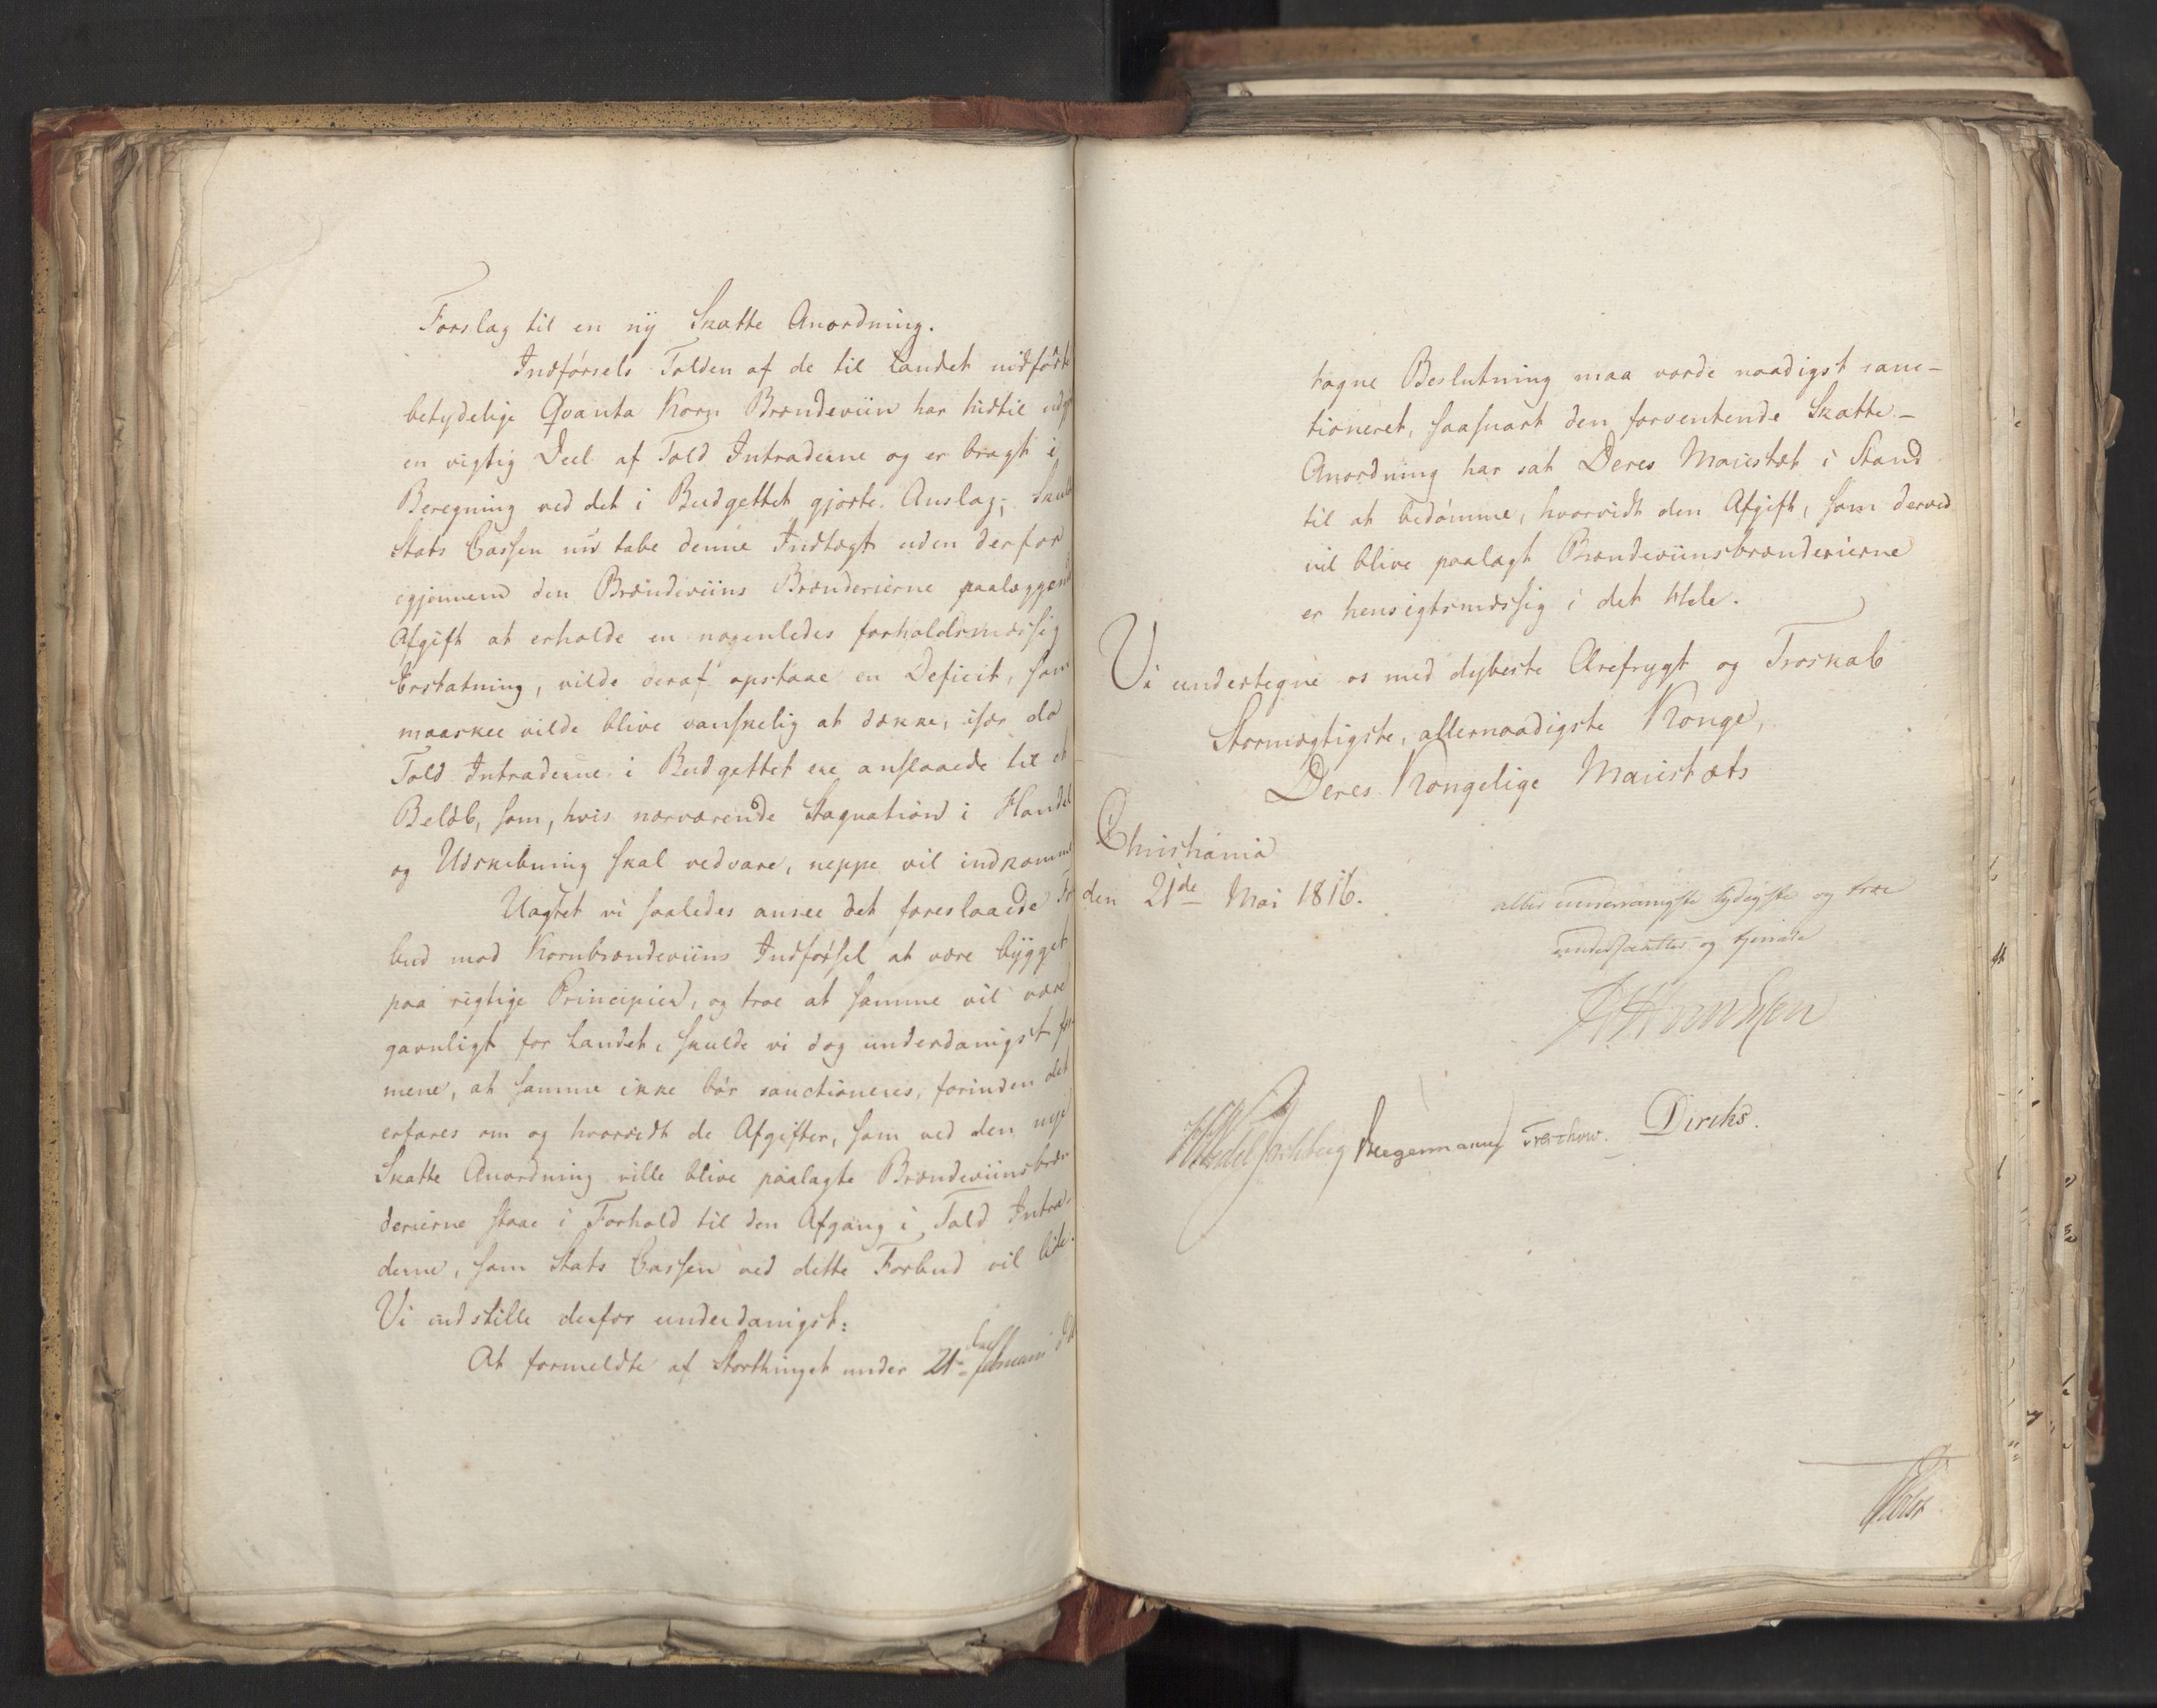 Forslag til en ny Skatte Anordning.
Indførsels Tolden af de til Landet indførte
betydelige Qvanta Korn Brændeviin har hidtil udgj
en vigtig Deel af Told Intraderne og er bragt i
Beregning ved det i Budgettet gjorte Anslag; Skuld
Stats Cassen nu tabe denne Indtægt uden derfor
igjennem den Brændeviins Brænderierne paalæggend
Afgift at erholde en nogenledes forholdsmæssig
Erstatning, vilde deraf opstaae en Deficit, som
maaskee vilde blive vanskelig at dække, især da
Told Intraderne i Budgettet ere anslaaede til et
Beløb, som, hvis nærværende Stagnation i Handel
og Udskibning skal vedvare, neppe vil indkomme
Uagtet vi saaledes ansee det foreslaaede For
bud mod Kornbrændeviins Indførsel at være bygget
paa rigtige Principier, og troe at samme vil være
gavnligt for Landet, skulde vi dog underdanigst for
mene, at samme ikke bør sanctioneres, forinden det
erfares om og hvorvidt de Afgifter, som ved den nye
Skatte Anordning ville blive paalagte Brændeviinsbræn
derierne staae i Forhold til den Afgang i Told Intra-
derne, som Stats Cassen ved dette Forbud vil lide.
Vi indstille derfor underdanigst:
At formeldte af Storthinget under 21 Februarii
tagne Beslutning maa vorde naadigst sanc-
tioneret, saasnart den forventende Skatte-
Anordning har sat Deres Maiestæt i Stand
til at bedømme, hvorvidt den Afgift, som derved
vil blive paalagt Brændeviinsbrænderierne
er hensigtsmæssig i det Hele.
Vi undertegne os med dybeste Ærefrygt og Troskab
Stormægtigste, allernaadigste Konge,
Deres Kongelige Maiestæts
Christiania
den 21de Mai 1816.
allerunderdanigste lydigste og troe
undersaatter og tjenere
Wedel Jarlsberg Krogemann Treschow. Dircks.